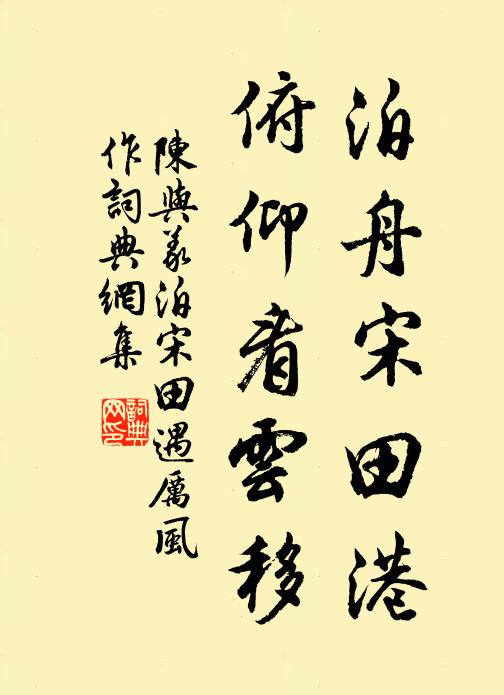 泊舟宋田港
俯仰看雲移
陳與義泊宋田遇厲風
作詞典網集
詞典網印